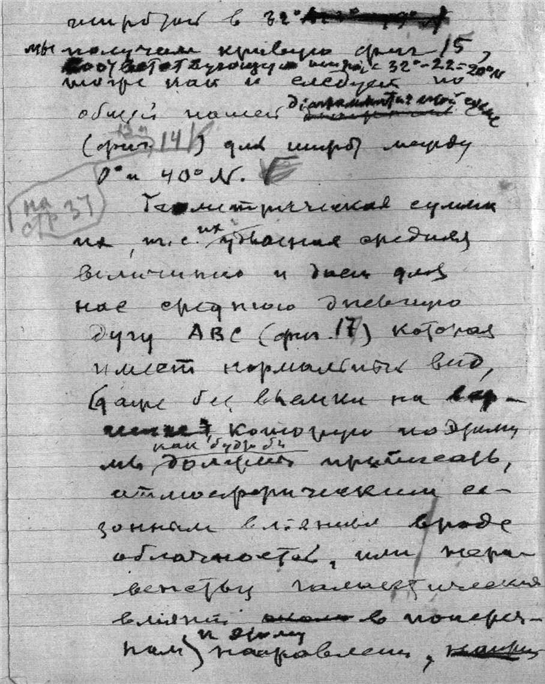 широтой в 32°
мы получаем кривую фиг. 15,
соответствующую широте 32°-22=20°N
как и следует по
общей нашей диаграмматической схеме
(фиг. 14) для широт между
0° и 40° N.
на
стр 37
Геометрическая сумма
их, т.е. их удвоенная средняя
величина и дает для
нас среднюю дневную
дугу ABC (фиг. 17) которая
имеет нормальный вид,
(даже без выемки на вер-
которую поэтому
мы как будто бы должны приписать,
атмосферическим се-
зонным влияниям вроде
облачностей, или нера-
венству галактических
влияний в попереч-
ном к этому направлении,